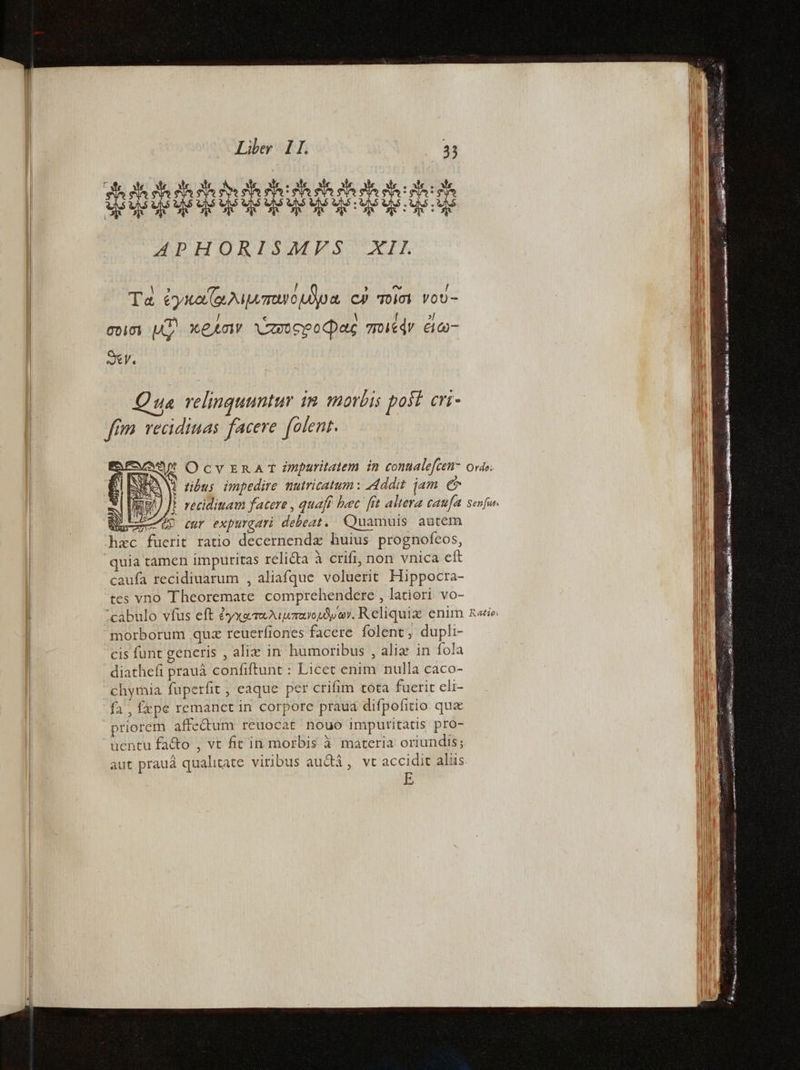 Liber II. 33
APHORISMVS XII.
Τὰ ἐγκαταλιμπανόμενα ἐν τοῖσι νού-
σοισι μετὰ κρίσιν ὑποστροφὰς ποιέειν εἴω-
θεν.
Quæ relinquuntur in morbis post cri-
ſim recidiuas facere ſolent.
DOCVERAT impuritatem in conualeſcen- Ordo.
tibus impedire nutricatum: Addit jam &
recidiuam facere, quaſi hæc ſit altera cauſa Senſus.
cur expurgari debeat. Quamuis autem
hæc fuerit ratio decernendæ huius prognoſeos,
quia tamen impuritas relicta à criſi, non vnica eſt
cauſa recidiuarum, aliaſque voluerit Hippocra-
tes vno Theoremate comprehendere, latiori vo-
cabulo vſus eſt ἐγκαταλιμπανομένων. Reliquiæ enim Ratio.
morborum quæ reuerſiones facere ſolent, dupli-
cis ſunt generis, aliæ in humoribus, aliæ in ſola
diatheſi prauâ conſiſtunt: Licet enim nulla caco-
chymia ſuperſit, eaque per criſim tota fuerit eli-
ſa, ſæpe remanet in corpore praua diſpoſitio quæ
priorem affectum reuocat nouo impuritatis pro-
uentu facto, vt fit in morbis à materia oriundis;
aut prauâ qualitate viribus auctâ, vt accidit aliis
E